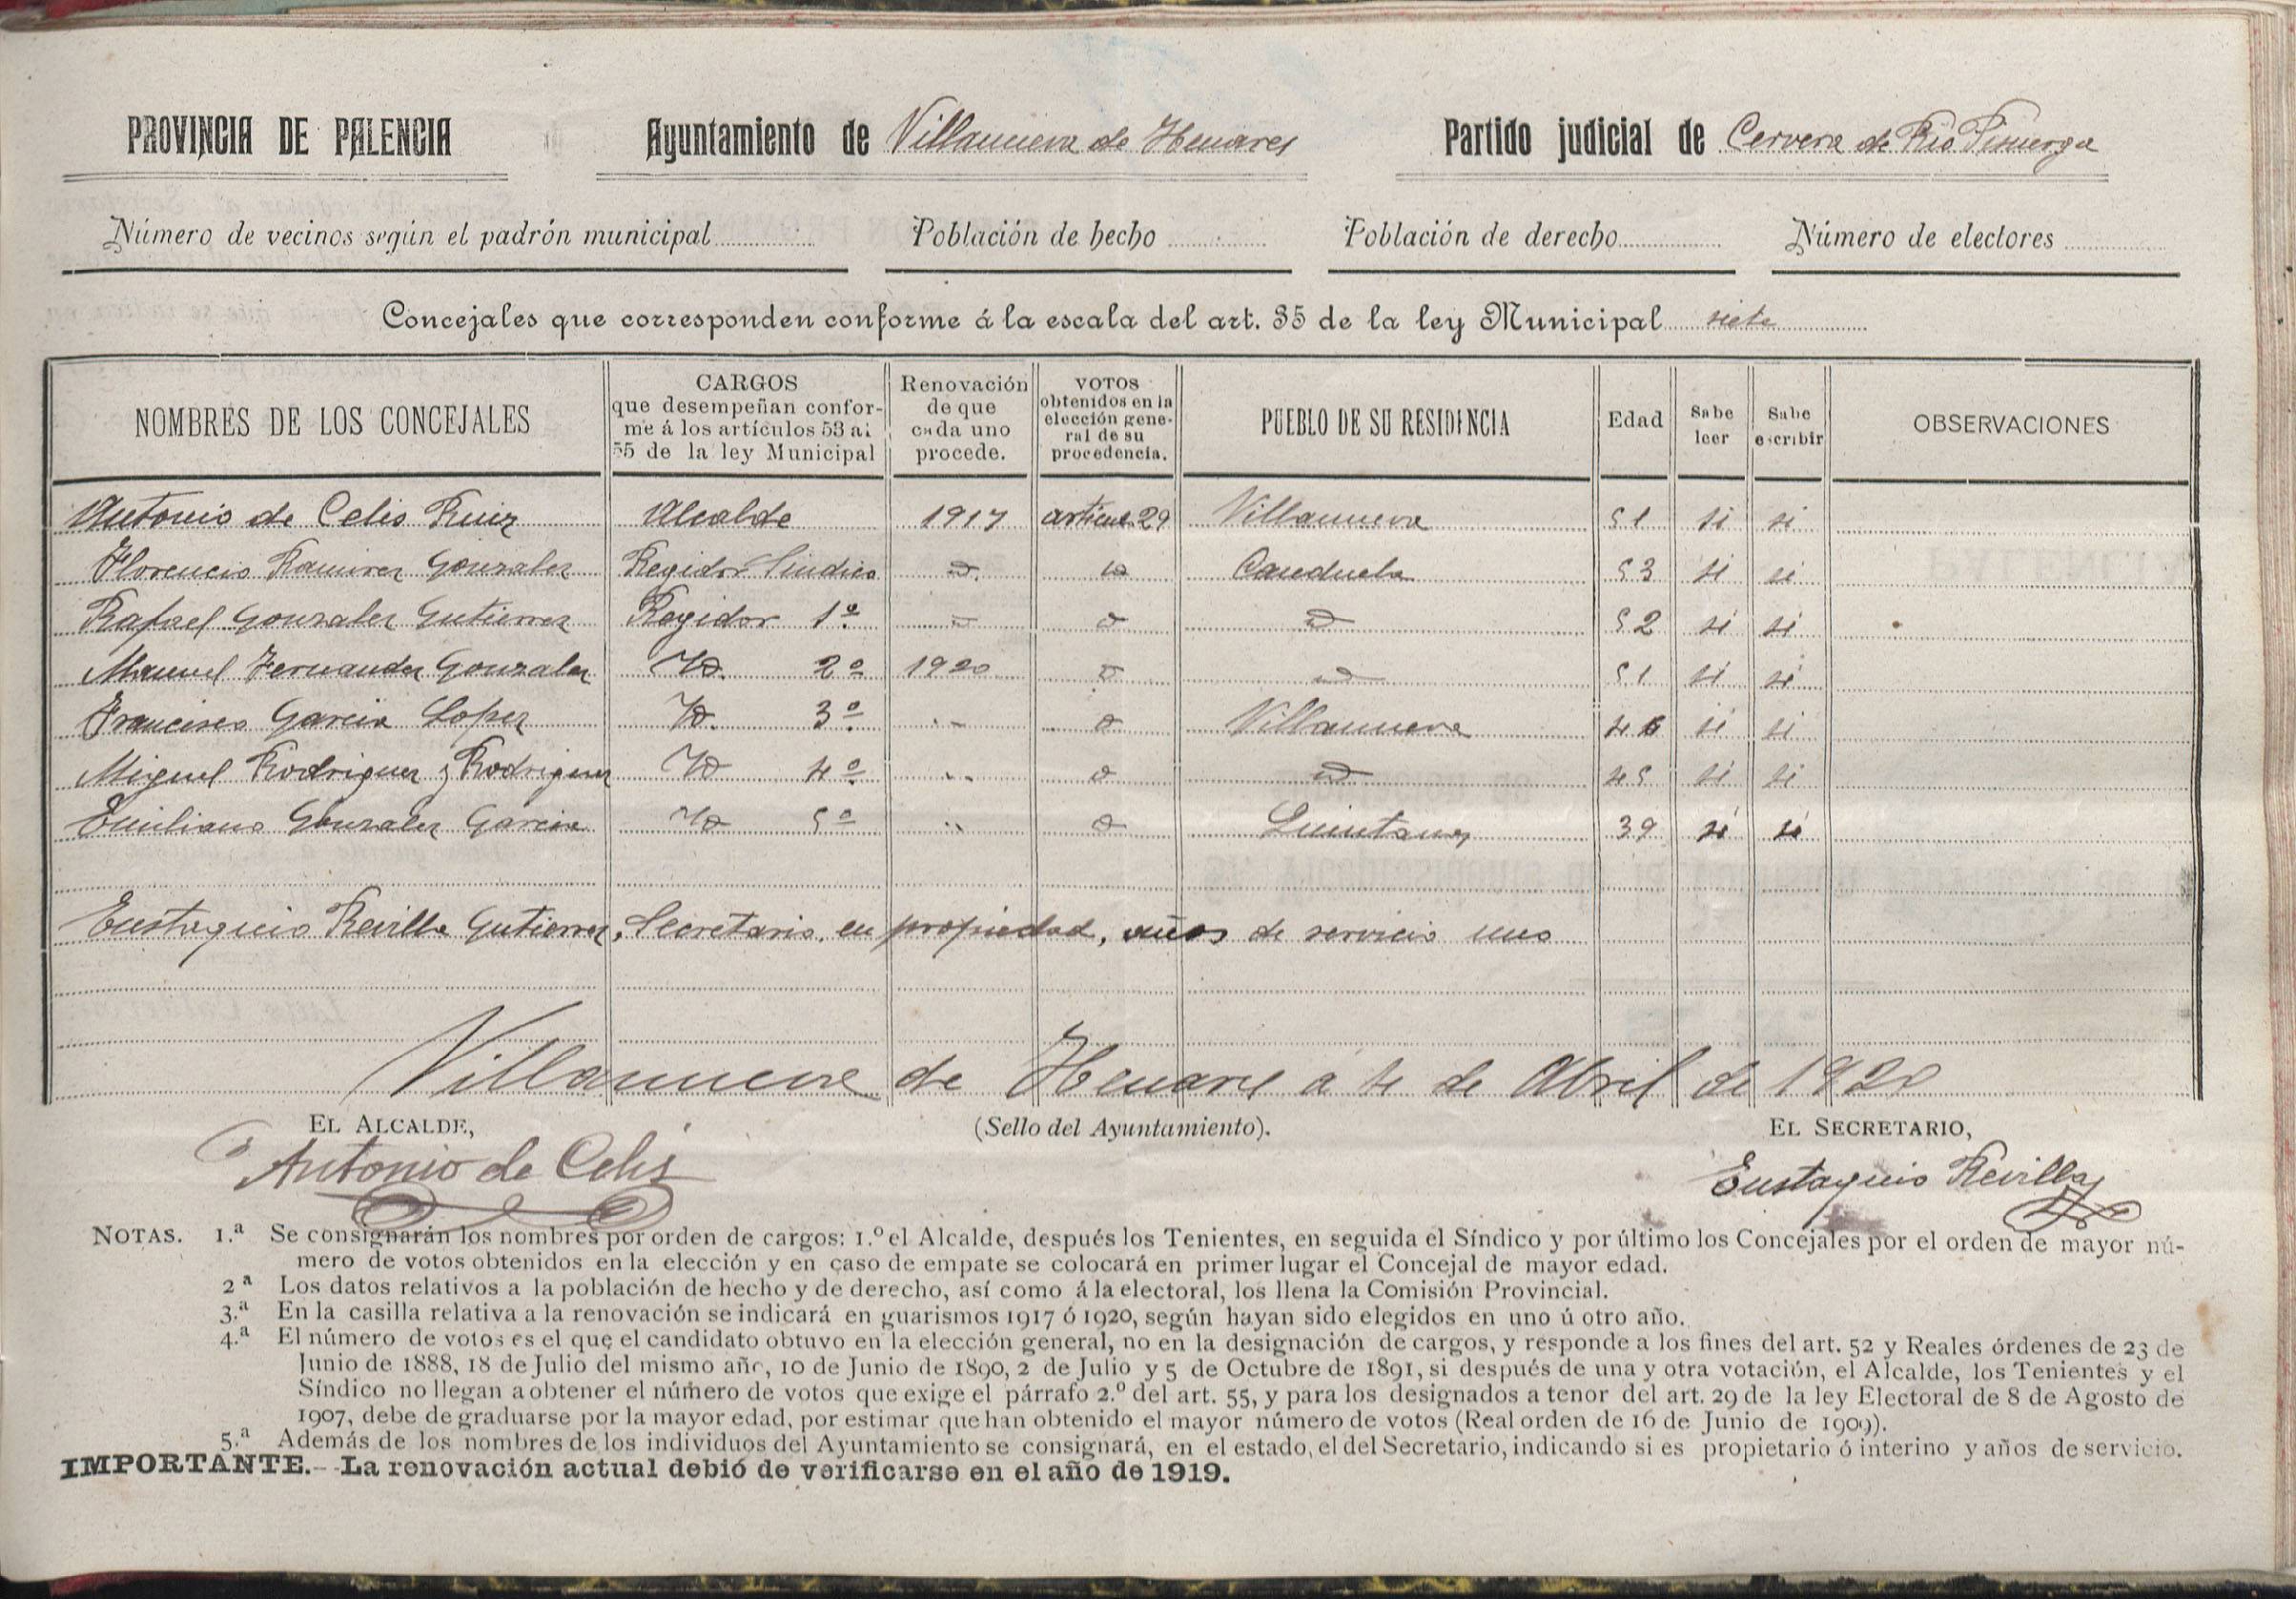 PROVINCIA DE PALENCIA Ayuntamiento de Villanueva de Henares Partido judicial de Cervera de Rio Pisuerga
Número de vecinos según el padrón municipal Población de hecho Población de derecho Número de electores
Concejales que corresponden conforme á la escala del art. 35 de la ley Municipal siete
NOMBRES DE LOS CONCEJALES
CARGOS
que desempeñan confor-
me á los artículos 53 al
55 de la ley Municipal
Renovación
de que
cada uno
procede.
VOTOS
obtenidos en la
elección gene-
ral de su
procedencia.
PUEBLO DE SU RESIDENCIA
Edad
Sabe
leer
Sabe
escribir
OBSERVACIONES
Antonio de Celis Ruiz Alcalde 1917 articul 29 Villanueva 51 si si
Florencio Ramirez Gonzalez Regidor Sindico id. id Canduela 53 si si
Rafael Gonzalez Gutierrez Regidor 1º id id id 52 si si
Manuel Fernandez Gonzalez Id. 2º 1920 id id 51 si si
Francisco Garcia Lopez Id. 3º " id Villanueva 46 si si
Miguel Rodriguez y Rodriguez Id 4º " id id 45 si si
Emiliano Gonzalez Garcia Id 5º " id Quintanas 39 si si
Eustaquio Revilla Gutierrez, Secretario en propiedad, años de servicio uno
Villanueva de Henares a 4 de Abril de 1920
EL ALCALDE, (Sello del Ayuntamiento). EL SECRETARIO,
Antonio de Celis Eustaquio Revilla
NOTAS. 1.ª Se consignarán los nombres por orden de cargos: 1.º el Alcalde, después los Tenientes, en seguida el Síndico y por último los Concejales por el orden de mayor nú-
mero de votos obtenidos en la elección y en caso de empate se colocará en primer lugar el Concejal de mayor edad.
2ª Los datos relativos a la población de hecho y de derecho, así como á la electoral, los llena la Comisión Provincial.
3.ª En la casilla relativa a la renovación se indicará en guarismos 1917 ó 1920, según hayan sido elegidos en uno ú otro año.
4.ª El número de votos es el que el candidato obtuvo en la elección general, no en la designación de cargos, y responde a los fines del art. 52 y Reales órdenes de 23 de
Junio de 1888, 18 de Julio del mismo año, 10 de Junio de 1890, 2 de Julio y 5 de Octubre de 1891, si después de una y otra votación, el Alcalde, los Tenientes y el
Síndico no llegan a obtener el número de votos que exige el párrafo 2.º del art. 55, y para los designados a tenor del art. 29 de la ley Electoral de 8 de Agosto de
1907, debe de graduarse por la mayor edad, por estimar que han obtenido el mayor número de votos (Real orden de 16 de Junio de 1909).
5.ª Además de los nombres de los individuos del Ayuntamiento se consignará, en el estado, el del Secretario, indicando si es propietario ó interino y años de servicio.
IMPORTANTE.- La renovación actual debió de verificarse en el año de 1919.